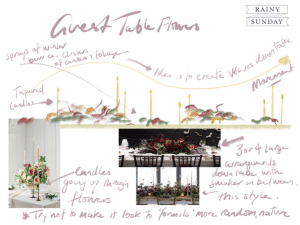 Guest Table Flowers
RAINY
SUNDAY
sprays of winter
berries, clusters
of candles & foliage
Idea is to create Waves down Table
Movement
Tapered
Candles
Candles
going up through
flowers
3 or 4 large
arrangements
down table with
smaller in between.
this style.
* Try not to make it look to 'formula' more random, nature